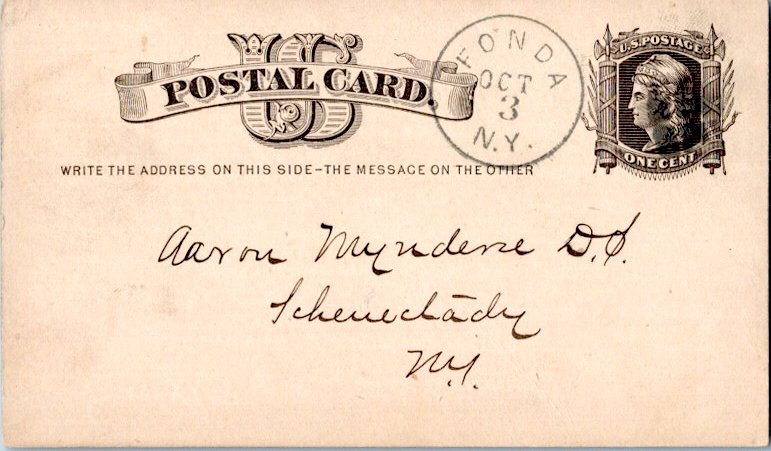 US
POSTAL CARD.
FONDA
OCT
3
N.Y.
U.S. POSTAGE
ONE CENT
WRITE THE ADDRESS ON THIS SIDE-THE MESSAGE ON THE OTHER
Aaron Mynderse D.S.
Schenectady
N.Y.